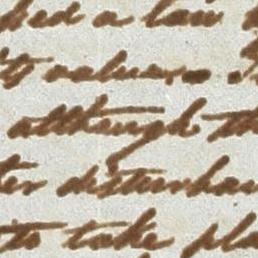 hed a law
its value
although th
ter disturban
to take pla